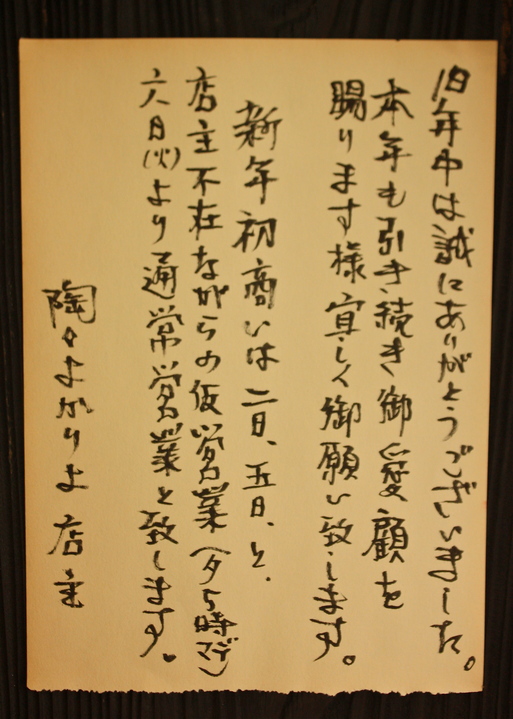 旧年中は誠にありがとうございました。
本年も引き続き御愛顧を
賜ります様宜しく御願い致します。
新年初商いは二日、五日、と、
店主不在ながらの仮営業(夕5時マデ)
六日(火)より通常営業と致します。
陶々よかりよ 店主